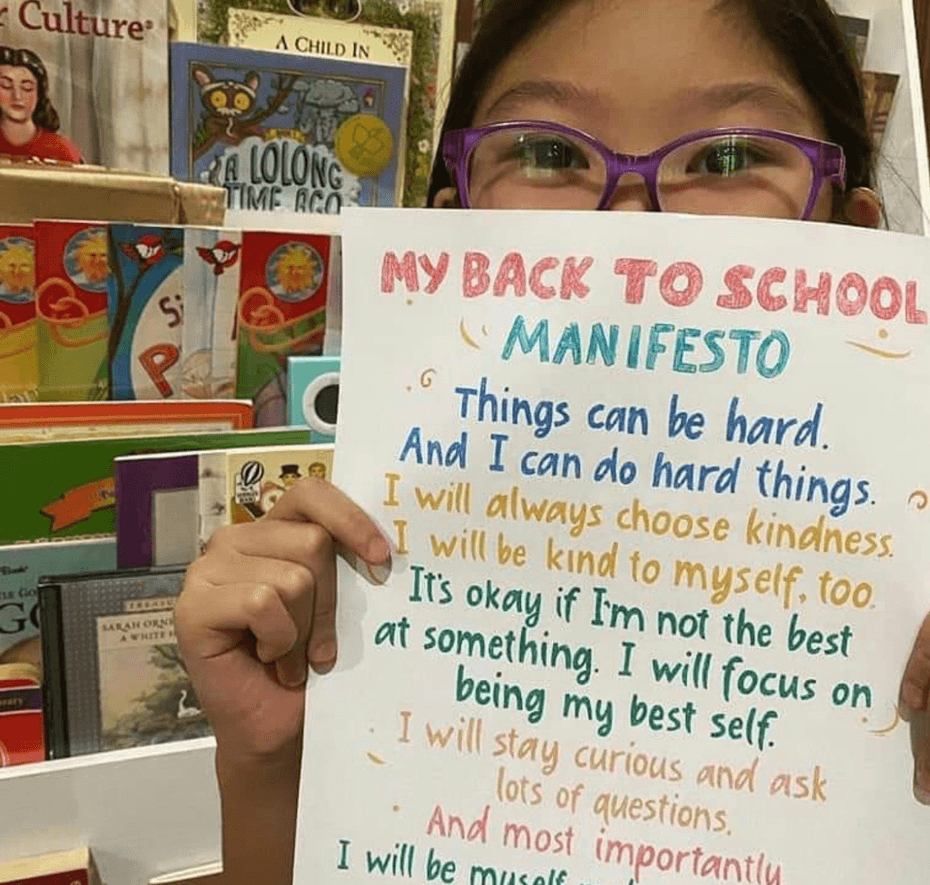 Culture
A CHILD IN
A LOLONG
TIME AGO
MY BACK TO SCHOOL
MANIFESTO
Things can be hard.
And I can do hard things.
I will always choose kindness.
I will be kind to myself, too.
It's okay if I'm not the best
at something. I will focus on
being my best self.
I will stay curious and ask
lots of questions.
And most importantly
I will be myself
SARAH ORNE
A WHITE